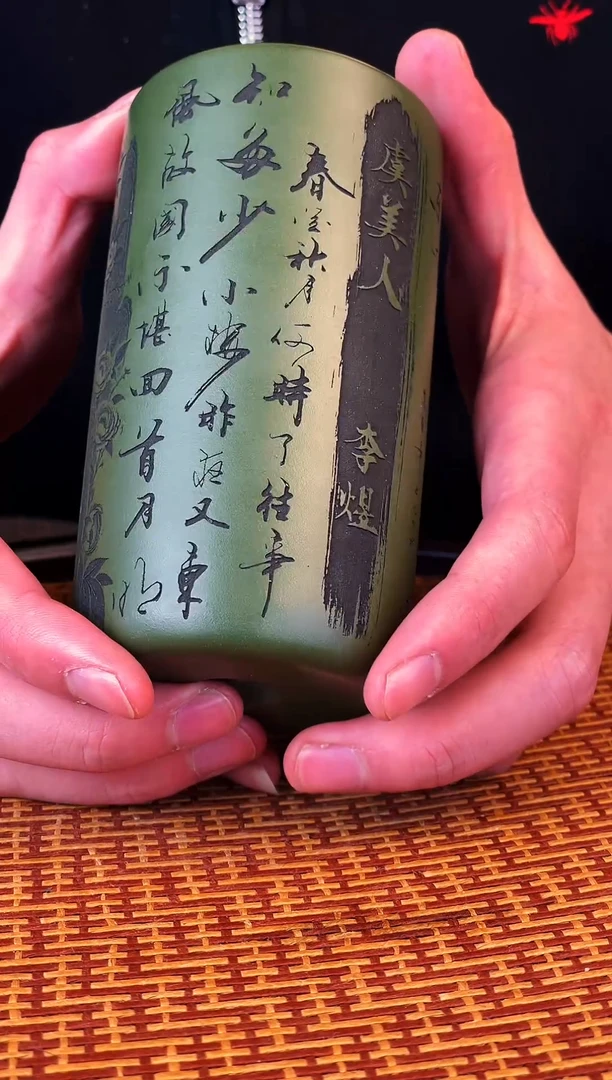 虞美人 李煜
春花秋月何時了往事
知多少小樓昨夜又東
風故國不堪回首月明